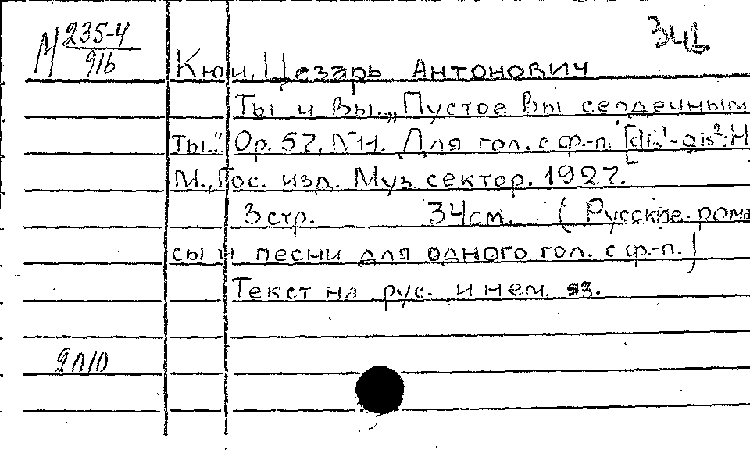 М 235-4
916
Кюи, Цезарь Антонович
Ты и Вы. „Пустое Вы сердечным
ты..." Ор. 57, №11. Для гол. с ф-п.
М., Гос. изд. Муз сектор. 1927.
3 стр. 34 см. (Русские рома
сы и песни для одного гол. с ф.-п.)
Текст на рус. и нем яз.